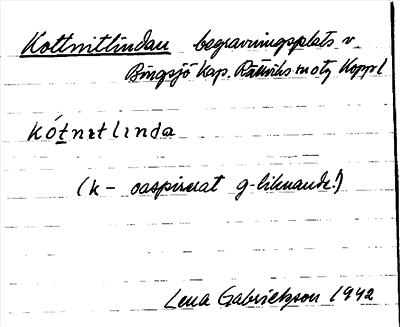 Kottnitlindan begravningsplats v
Bingsjö kap. Rättviks Koppl
kót̲nɪtlɪnda
(k- oaspirerat g-liknande!)
Lena Gabrielsson 1942